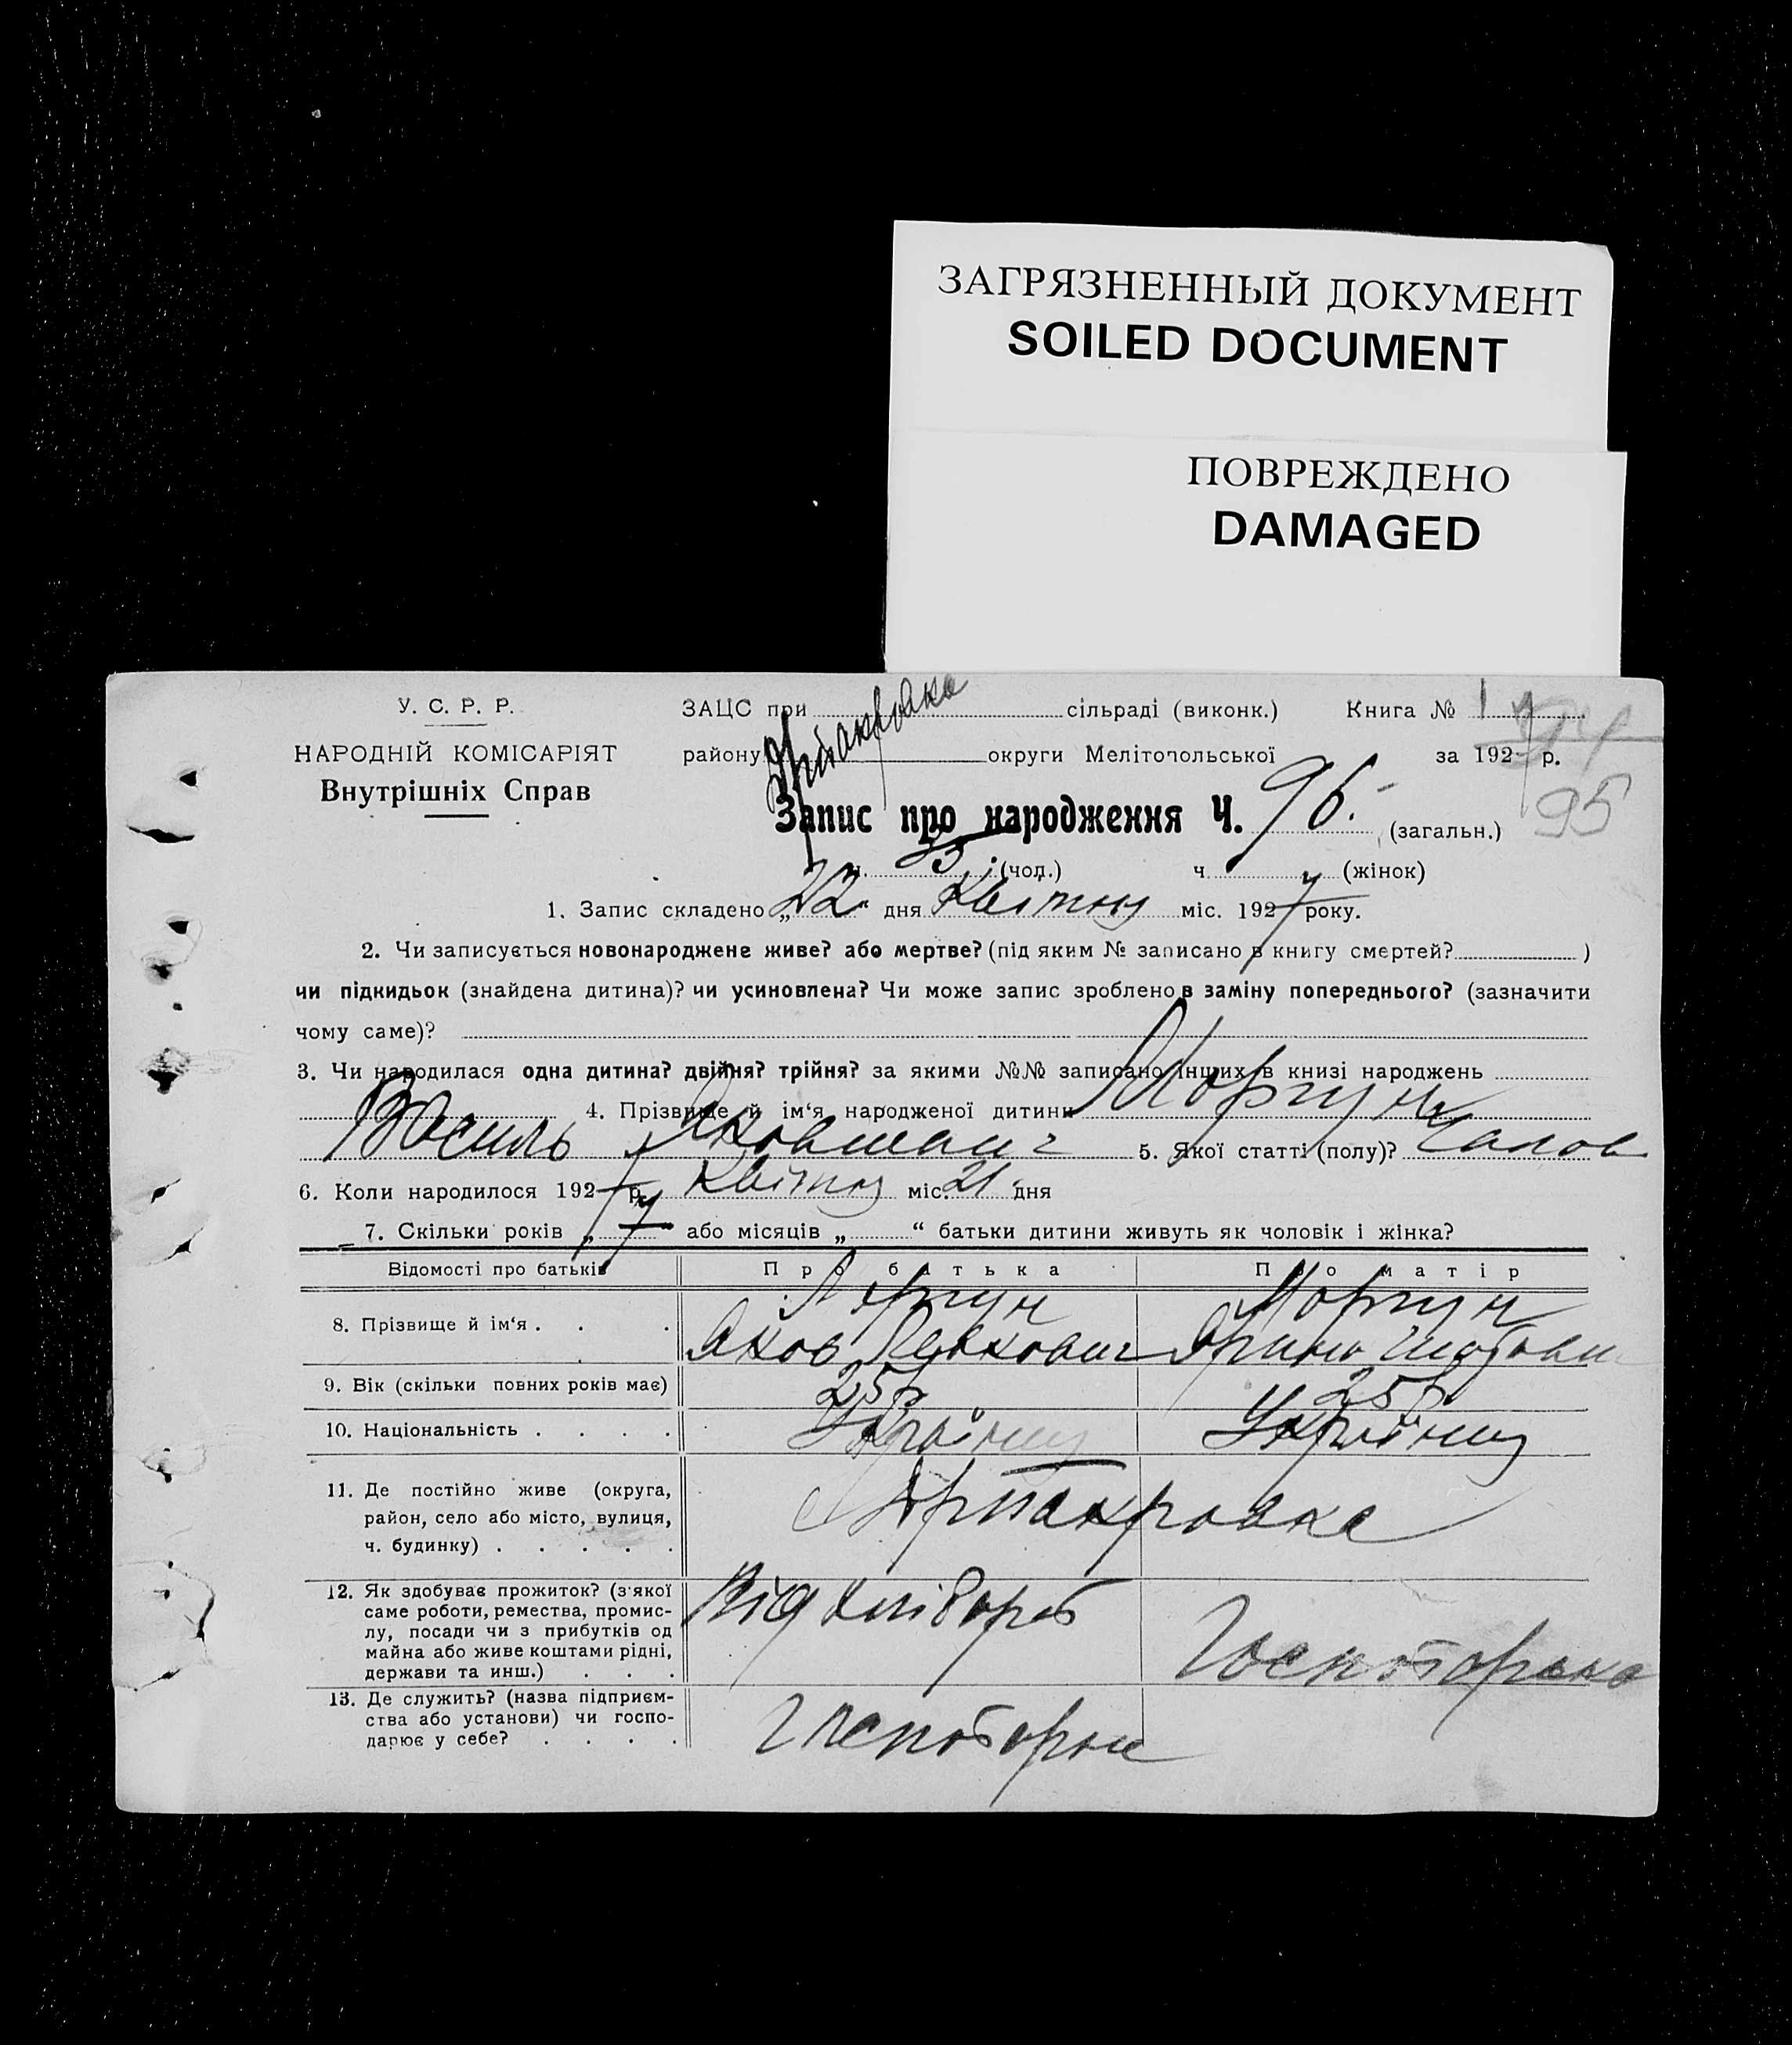 ЗАГРЯЗНЕННЫЙ ДОКУМЕНТ
SOILED DOCUMENT
ПОВРЕЖДЕНО
DAMAGED
У. С. Р. Р.
НАРОДНІЙ КОМІСАРІЯТ
Внутрішніх Справ
ЗАЦС при сільраді (виконк.) Книга № 1
району округи Мелітопольської за 1927 р.
Запис про народження Ч. 96. (загальн.)
95
ч. 53 (чол.) ч. (жінок)
1. Запис складено „22“ дня Квітня міс. 1927 року.
2. Чи записується новонароджене живе? або мертве? (під яким № записано в книгу смертей? )
чи підкидьок (знайдена дитина)? чи усиновлена? Чи може запис зроблено в заміну попереднього? (зазначити
чому саме)?
3. Чи народилася одна дитина? двійня? трійня? за якими №№ записано інших в книзі народжень
4. Прізвище й ім‘я народженої дитини Моргун
Василь Яковлевич 5. Якої статті (полу)? Чолов
6. Коли народилося 1927 р. Квітня міс. 21 дня
7. Скільки років „ “ або місяців „ “ батьки дитини живуть як чоловік і жінка?
Відомості про батьків Про батька Про матір
8. Прізвище й ім‘я . . . Моргун Моргун
Яков
9. Вік (скільки повних років має) 25р 25р
10. Національність . . . . Україниц Україниц
11. Де постійно живе (округа,
район, село або місто, вулиця,
ч. будинку) . . . . .
12. Як здобуває прожиток? (з‘якої
саме роботи, ремества, промис-
лу, посади чи з прибутків од
майна або живе коштами рідні,
держави та инш.) . . .
Від хлібороб
13. Де служить? (назва підприєм-
ства або установи) чи госпо-
дарює у себе? . . . .